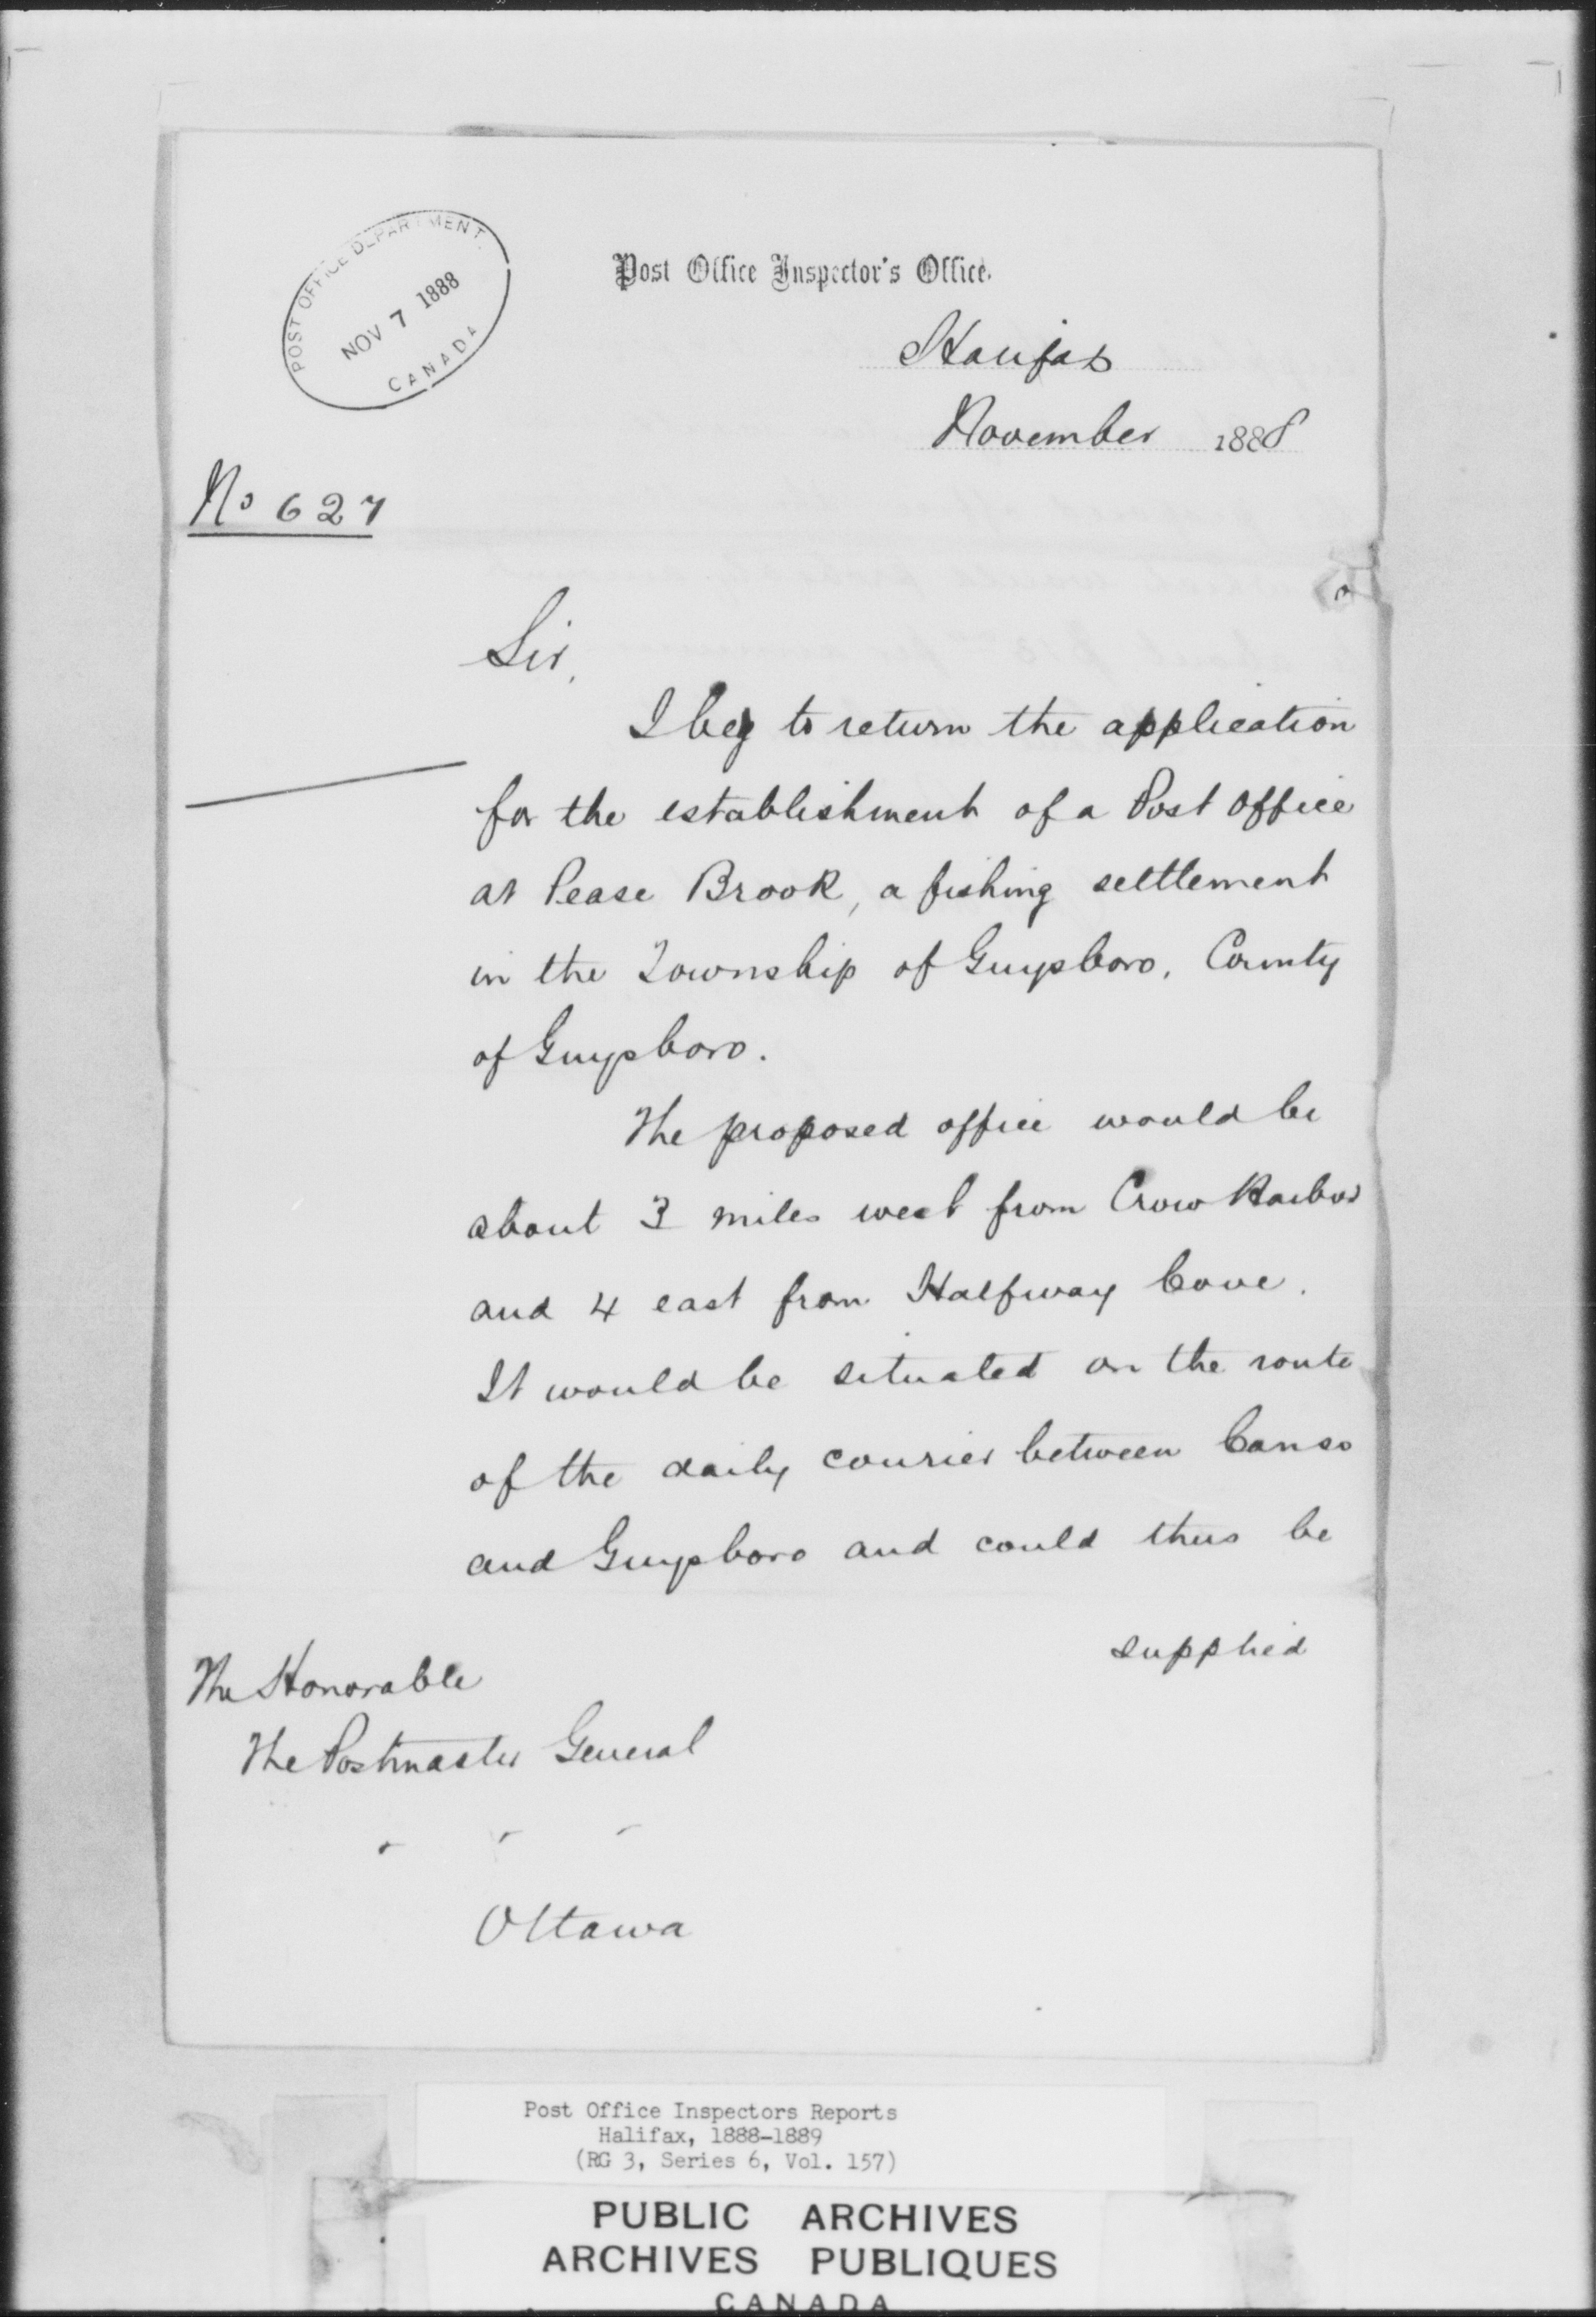 POST OFFICE DEPARTMENT.
NOV 7 1888
CANADA
Post Office Inspector's Office.
Halifax
November 1888
No 627
Sir,
I beg to return the application
for the establishment of a Post Office
at Pease Brook, a fishing settlement
in the Township of Guysboro, County
of Guysboro.
The proposed office would be
about 3 miles west from Crow Harbor
and 4 east from Halfway Cove.
It would be situated on the route
of the daily courier between Canso
and Guysboro and could thus be
supplied
The Honorable
The Postmaster General
Ottawa
Post Office Inspectors Reports
Halifax, 1888-1889
(RG 3, Series 6, Vol. 157)
PUBLIC ARCHIVES
ARCHIVES PUBLIQUES
CANADA